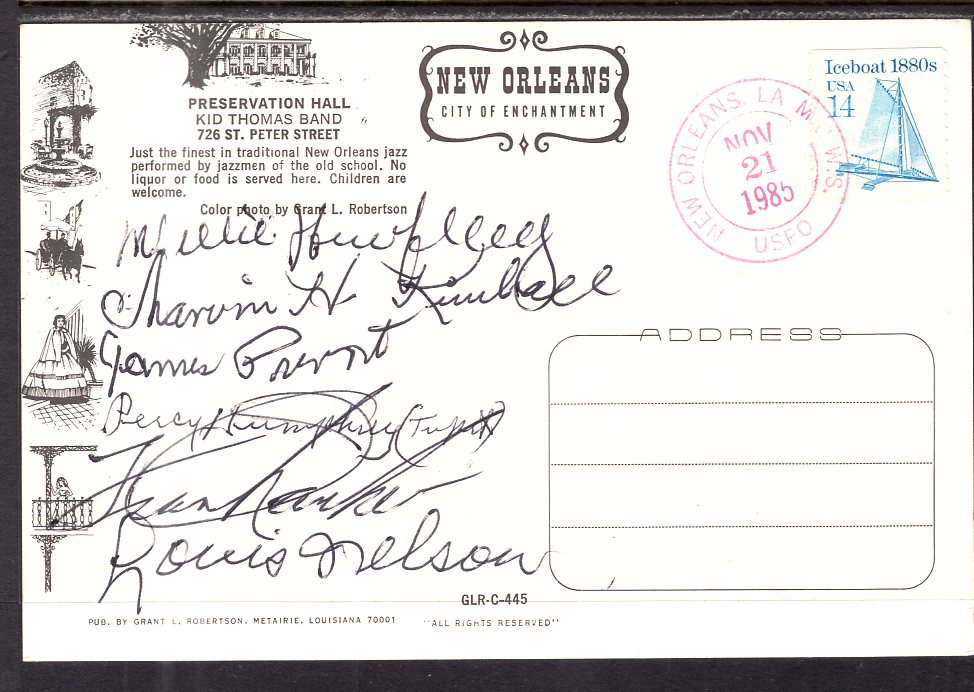 PRESERVATION HALL
KID THOMAS BAND
726 ST. PETER STREET
Just the finest in traditional New Orleans jazz
performed by jazzmen of the old school. No
liquor or food is served here. Children are
welcome.
Color photo by Grant L. Robertson
NEW ORLEANS
CITY OF ENCHANTMENT
NEW ORLEANS, LA
NOV
21
1985
USPO
Iceboat 1880s
USA
14
Willie Humphrey
Narvin H Kimball
James Prevost
Percy Humphrey
Frank Parker
Louis Nelson
ADDRESS
GLR-C-445
PUB. BY GRANT L. ROBERTSON, METAIRIE, LOUISIANA 70001 "ALL RIGHTS RESERVED"